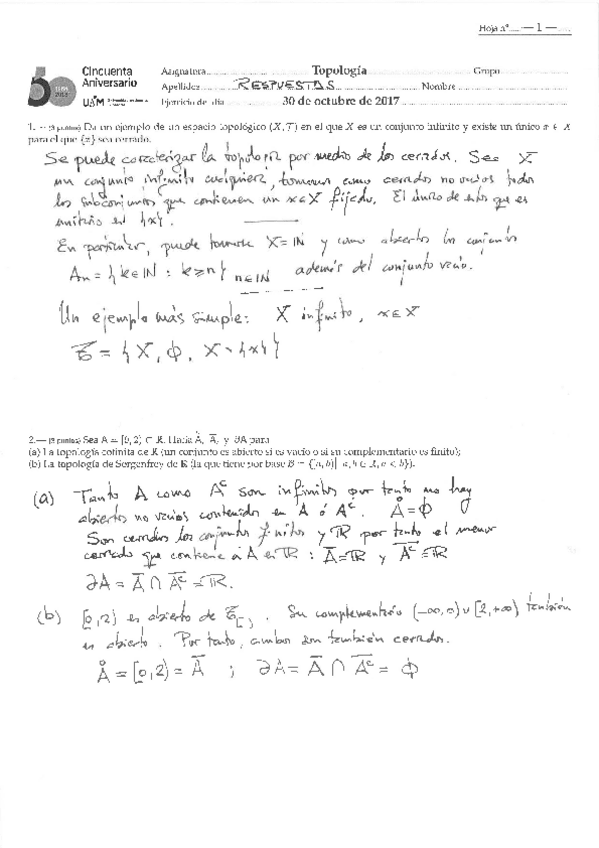 Hoja nº — 1 —
Cincuenta
Aniversario
UAM
Asignatura Topología Grupo
Apellidos RESPUESTAS Nombre
Ejercicio del día 30 de octubre de 2017
1.— (3 puntos) Da un ejemplo de un espacio topológico (X, T) en el que X es un conjunto infinito y existe un único x ∈ X
para el que {x} sea cerrado.
Se puede caracterizar la topología por medio de los cerrados. Sea X
un conjunto infinito cualquiera, tomamos como cerrados no vacíos todos
los subconjuntos que contienen un x∈X fijado. El único de estos que es
unitario es {x}.
En particular, puede tomarse X=ℕ y como abiertos los conjuntos
Aₙ = {k∈ℕ : k≥n} n∈ℕ además del conjunto vacío.
Un ejemplo más simple: X infinito, x∈X
𝒯 = {X, ∅, X∖{x}}
2.— (3 puntos) Sea A = [0, 2) ⊂ ℝ. Halla Å, A̅, y ∂A para
(a) La topología cofinita de ℝ (un conjunto es abierto si es vacío o si su complementario es finito);
(b) La topología de Sorgenfrey de ℝ (la que tiene por base B = {[a, b)| a, b ∈ ℝ, a < b}).
(a) Tanto A como Aᶜ son infinitos por tanto no hay
abiertos no vacíos contenidos en A ó Aᶜ. Å=∅
Son cerrados los conjuntos finitos y ℝ por tanto el menor
cerrado que contiene a A es ℝ : A̅=ℝ y A̅ᶜ=ℝ
∂A = A̅ ∩ A̅ᶜ = ℝ.
(b) [0,2) es abierto de 𝒯[,). Su complementario (-∞,0)∪[2,+∞) también
es abierto. Por tanto, ambos son también cerrados.
Å = [0,2) = A̅ ; ∂A = A̅ ∩ A̅ᶜ = ∅